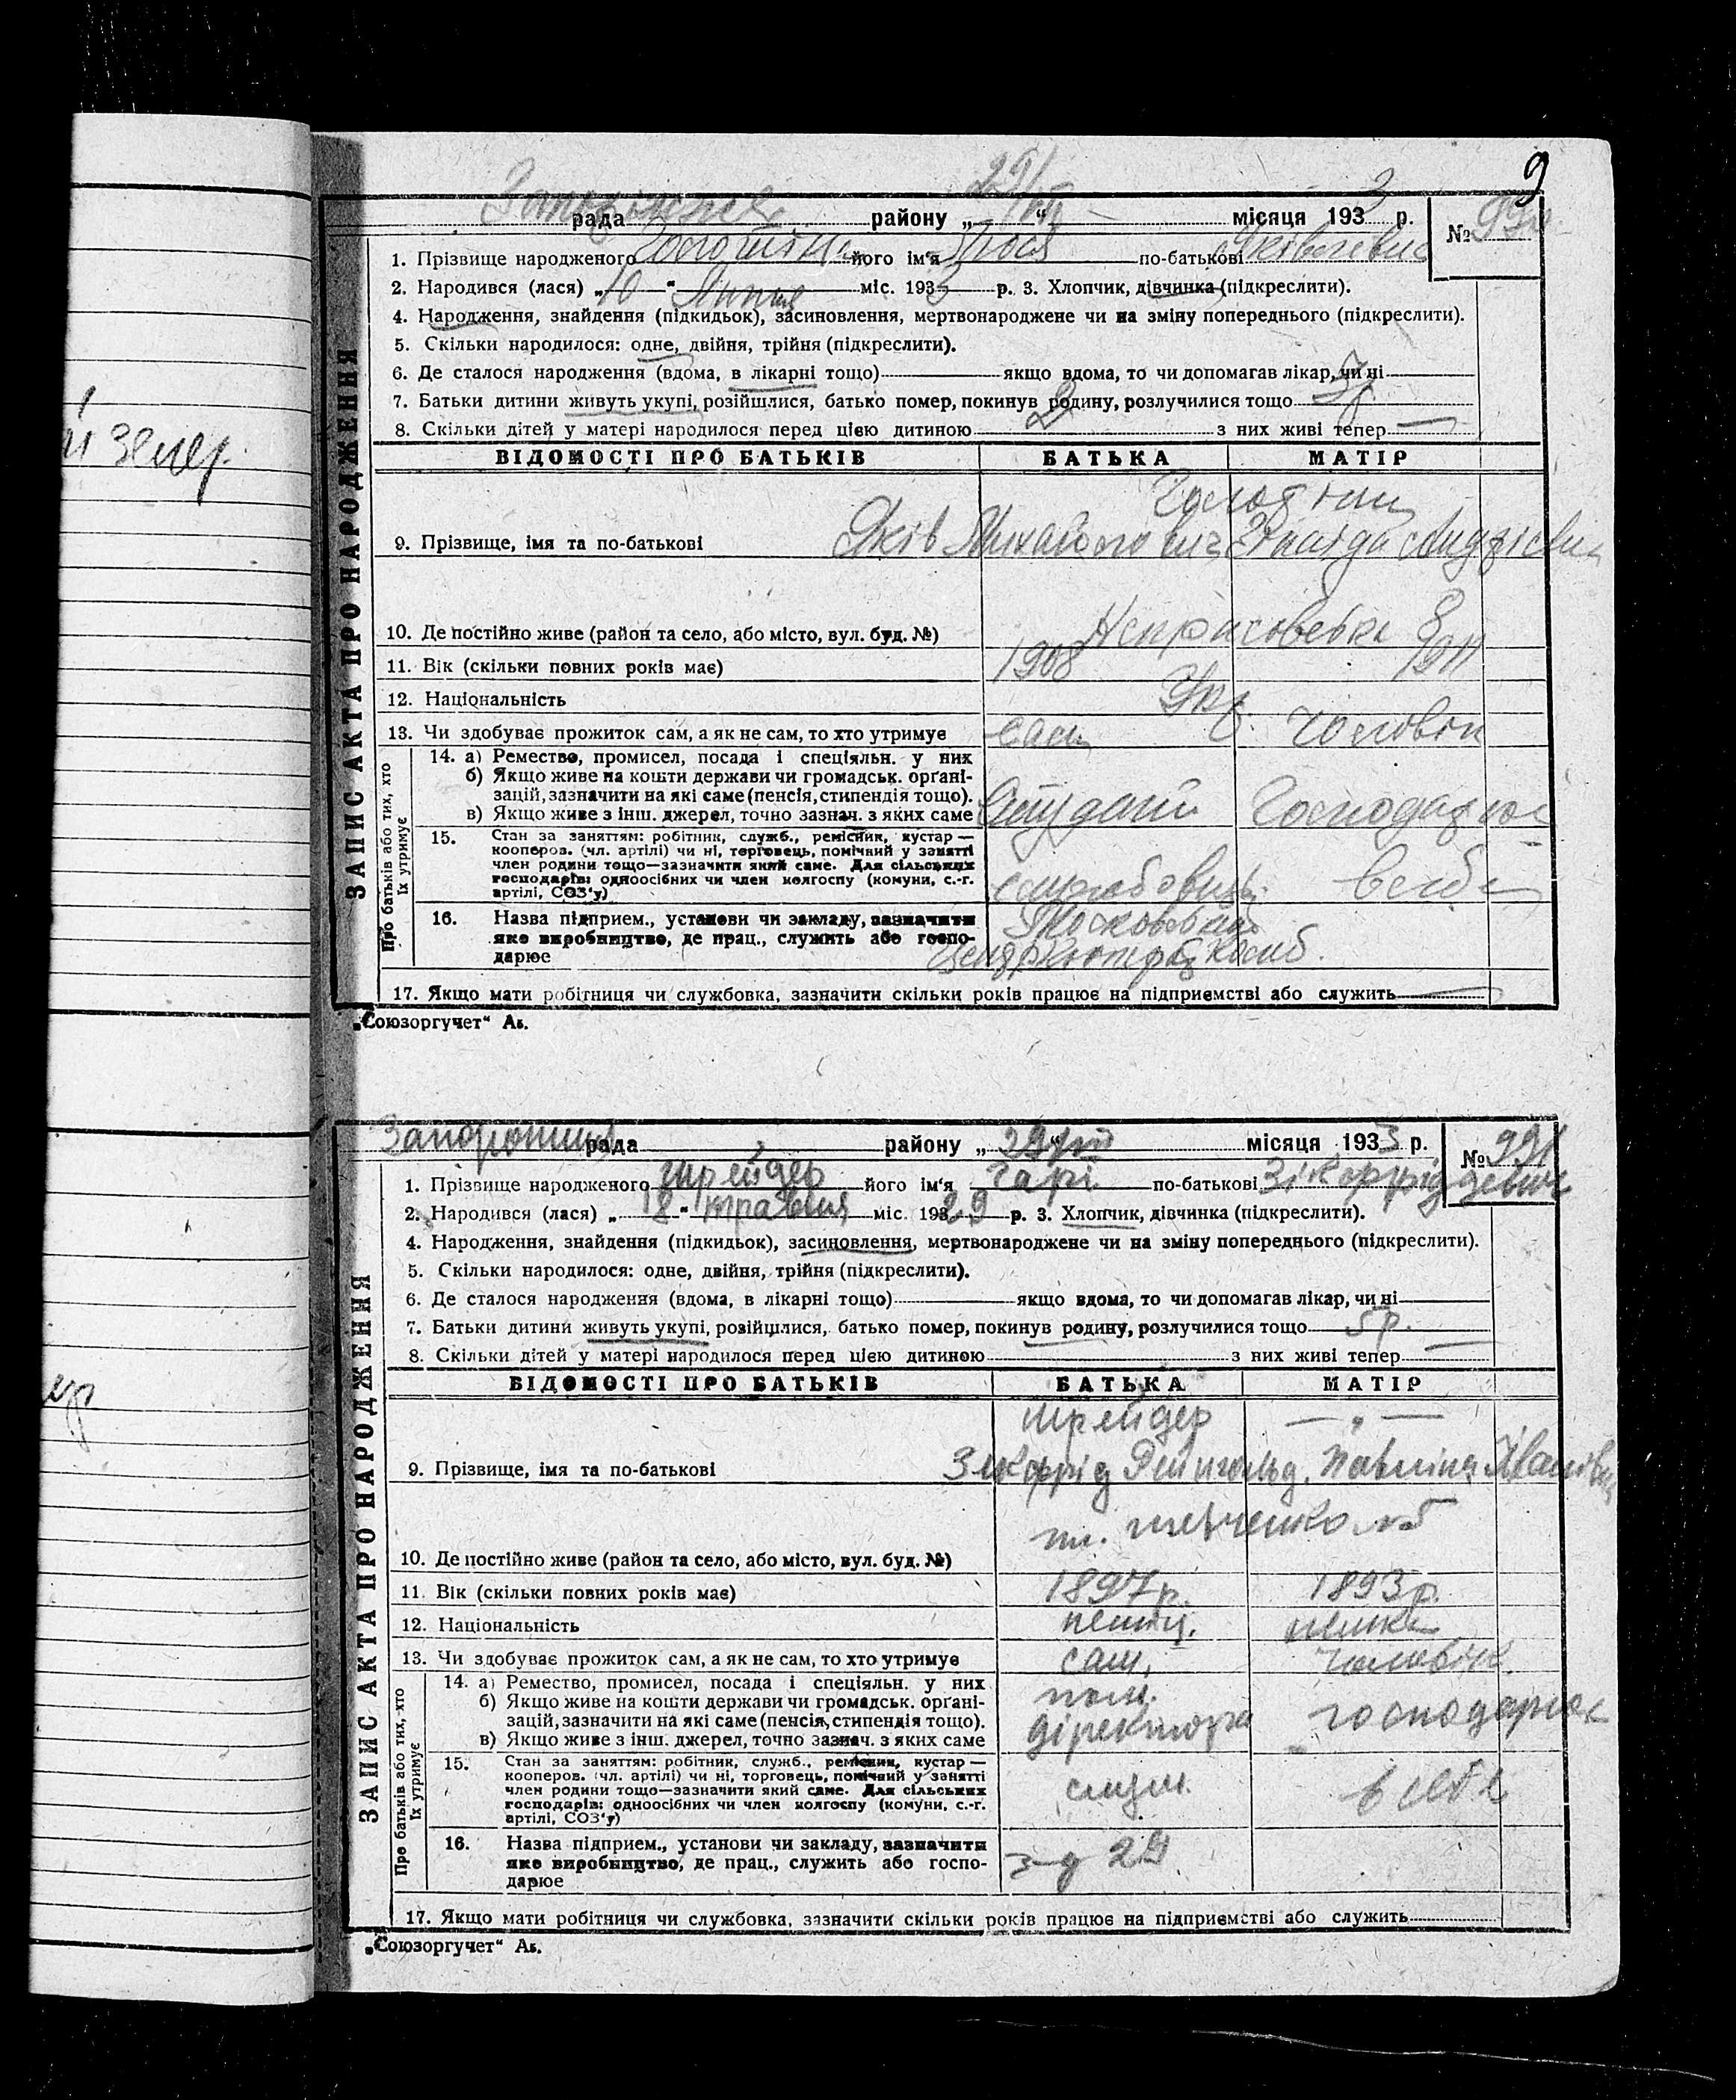 9
рада району „29/VII“ місяця 1933 р.
№ 990
1. Прізвище народженого його ім'я по-батькові Яківлевна
2. Народився (лася) „10“ Липня міс. 1933 р. 3. Хлопчик, дівчинка (підкреслити).
4. Народження, знайдення (підкидьок), засиновлення, мертвонароджене чи на зміну попереднього (підкреслити).
5. Скільки народилося: одне, двійня, трійня (підкреслити).
6. Де сталося народження (вдома, в лікарні тощо) якщо вдома, то чи допомагав лікар, чи ні
7. Батьки дитини живуть укупі, розійшлися, батько помер, покинув родину, розлучилися тощо 3р
8. Скільки дітей у матері народилося перед цією дитиною 2 з них живі тепер —
ВІДОМОСТІ ПРО БАТЬКІВ БАТЬКА МАТІР
9. Прізвище, імя та по-батькові Яків Михайлович
10. Де постійно живе (район та село, або місто, вул. буд. №)
11. Вік (скільки повних років має) 1908 1911
12. Національність Укр.
13. Чи здобуває прожиток сам, а як не сам, то хто утримує сам чоловік
14. а) Ремество, промисел, посада і спеціяльн. у них
б) Якщо живе на кошти держави чи громадськ. орґані-
зацій, зазначити на які саме (пенсія, стипендія тощо).
в) Якщо живе з інш. джерел, точно зазнач. з яких саме Студент Господарює
15. Стан за заняттям: робітник, служб., ремісник, кустар —
кооперов. (чл. артілі) чи ні, торговець, помічний у занятті
член родини тощо—зазначити який саме. Для сільських
господарів: одноосібних чи член колгоспу (комуни, с.-г.
артілі, СОЗ'у) вдома
16. Назва підприєм., установи чи закладу, зазначити
яке виробництво, де прац., служить або госпо-
дарює
17. Якщо мати робітниця чи службовка, зазначити скільки років працює на підприємстві або служить —
ЗАПИС АКТА ПРО НАРОДЖЕННЯ
Про батьків або тих, хто їх утримує
„Союзоргучет“ Аб.
рада району „29/VII“ місяця 1933 р.
№ 991
1. Прізвище народженого Шрейдер його ім'я Гарі по-батькові Зікфріддевич
2. Народився (лася) „18“ травня міс. 1929 р. 3. Хлопчик, дівчинка (підкреслити).
4. Народження, знайдення (підкидьок), засиновлення, мертвонароджене чи на зміну попереднього (підкреслити).
5. Скільки народилося: одне, двійня, трійня (підкреслити).
6. Де сталося народження (вдома, в лікарні тощо) якщо вдома, то чи допомагав лікар, чи ні
7. Батьки дитини живуть укупі, розійшлися, батько помер, покинув родину, розлучилися тощо 5р.
8. Скільки дітей у матері народилося перед цією дитиною з них живі тепер —
ВІДОМОСТІ ПРО БАТЬКІВ БАТЬКА МАТІР
Шрейдер — „ —
9. Прізвище, імя та по-батькові Зикфрід Рейнгольд. Павліна Іванівна
пл. Шевченко №5
10. Де постійно живе (район та село, або місто, вул. буд. №)
11. Вік (скільки повних років має) 1897р. 1893р.
12. Національність немец. немка
13. Чи здобуває прожиток сам, а як не сам, то хто утримує сам. чоловік.
14. а) Ремество, промисел, посада і спеціяльн. у них пом.
б) Якщо живе на кошти держави чи громадськ. орґані-
зацій, зазначити на які саме (пенсія, стипендія тощо). діректора господарює
в) Якщо живе з інш. джерел, точно зазнач. з яких саме
15. Стан за заняттям: робітник, служб., ремісник, кустар —
кооперов. (чл. артілі) чи ні, торговець, помічний у занятті
член родини тощо—зазначити який саме. Для сільських
господарів: одноосібних чи член колгоспу (комуни, с.-г.
артілі, СОЗ'у) служ. в себе
16. Назва підприєм., установи чи закладу, зазначити
яке виробництво, де прац., служить або госпо-
дарює з-д 29
17. Якщо мати робітниця чи службовка, зазначити скільки років працює на підприємстві або служить
ЗАПИС АКТА ПРО НАРОДЖЕННЯ
Про батьків або тих, хто їх утримує
„Союзоргучет“ Аб.